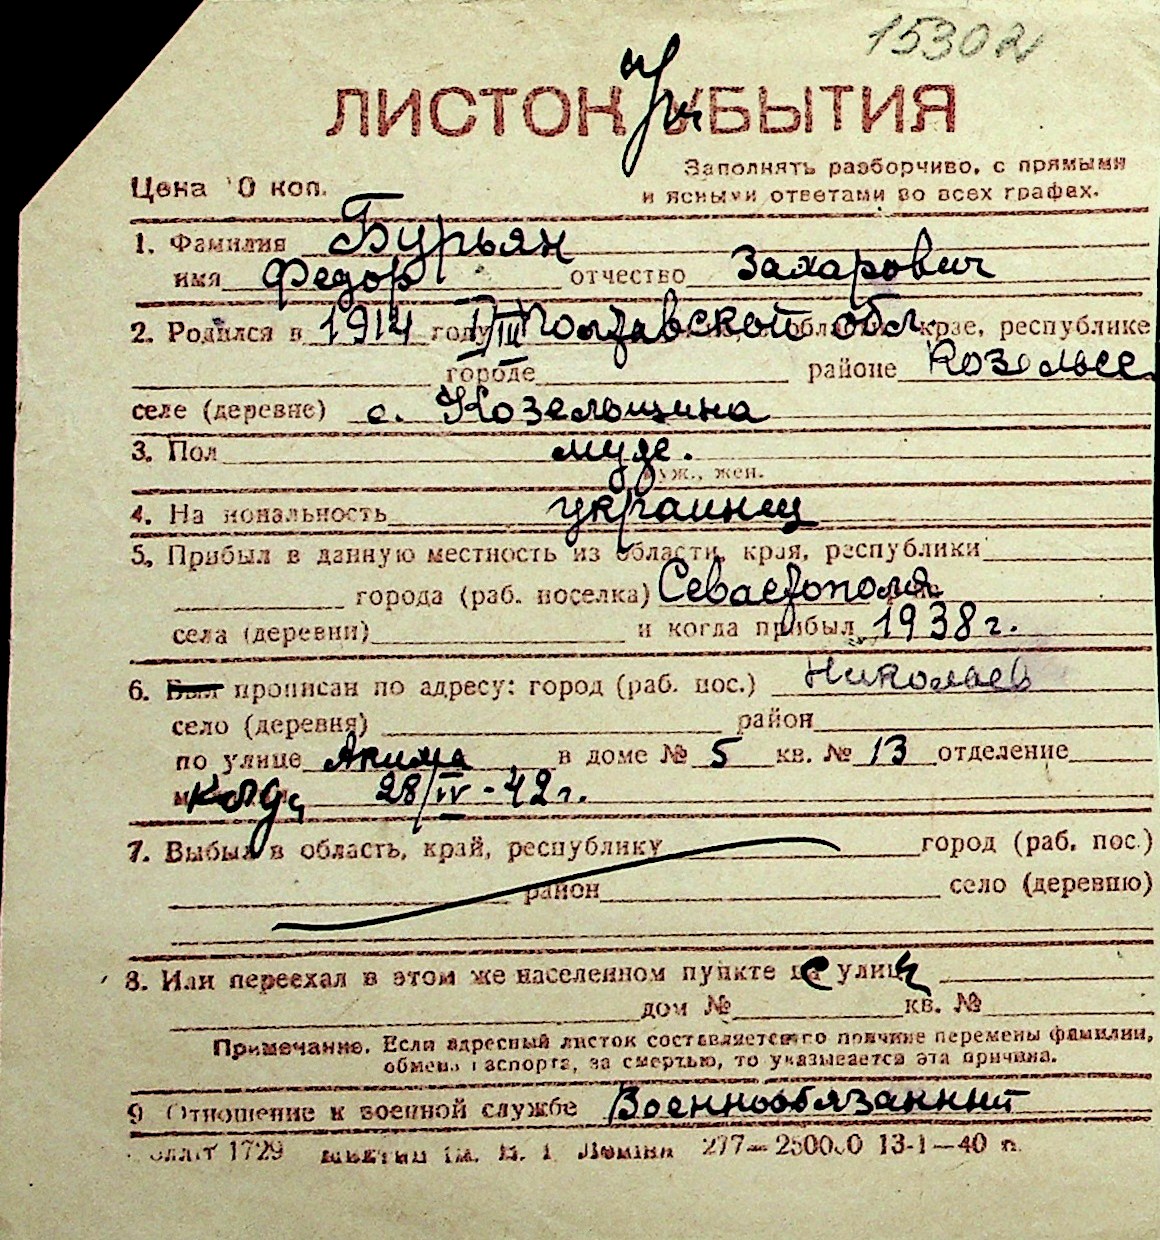 15302
ЛИСТОК УБЫТИЯ
При
Заполнять разборчиво, с прямыми
Цена 10 коп. и ясными ответами во всех графах.
1. Фамилия Бурьян
имя Федор отчество Захарович
2. Родился в 1914 году 1/III Полтавской обл. области, крае, республике
городе районе Козельск.
селе (деревне) с. Козельщина
3. Пол муж.
муж., жен.
4. Национальность украинец
5. Прибыл в данную местность из области, края, республики
города (раб. поселка) Севастополя
села (деревни) и когда прибыл 1938 г.
6. Был прописан по адресу: город (раб. пос.) Николаев
село (деревня) район
по улице Акима в доме № 5 кв. № 13 отделение
когда 28/IV-42 г.
7. Выбыл в область, край, республику город (раб. пос.)
район село (деревню)
8. Или переехал в этом же населенном пункте с улицы
дом № кв. №
Примечание. Если адресный листок составляется по причине перемены фамилии,
обмена паспорта, за смертью, то указывается эта причина.
9 Отношение к военной службе Военнообязанный
1729 ім. Леніна 277—250000 13-1—40 п.